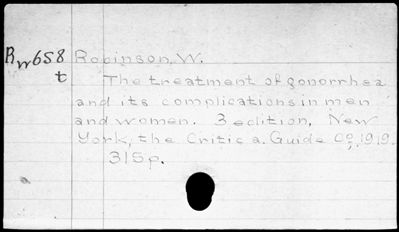 Rw658 Robinson, W.
t The treatment of gonorrhea
and its complications in men
and women. 3 edition, New
York, the Critic a. Guide Co, 1919.
315p.